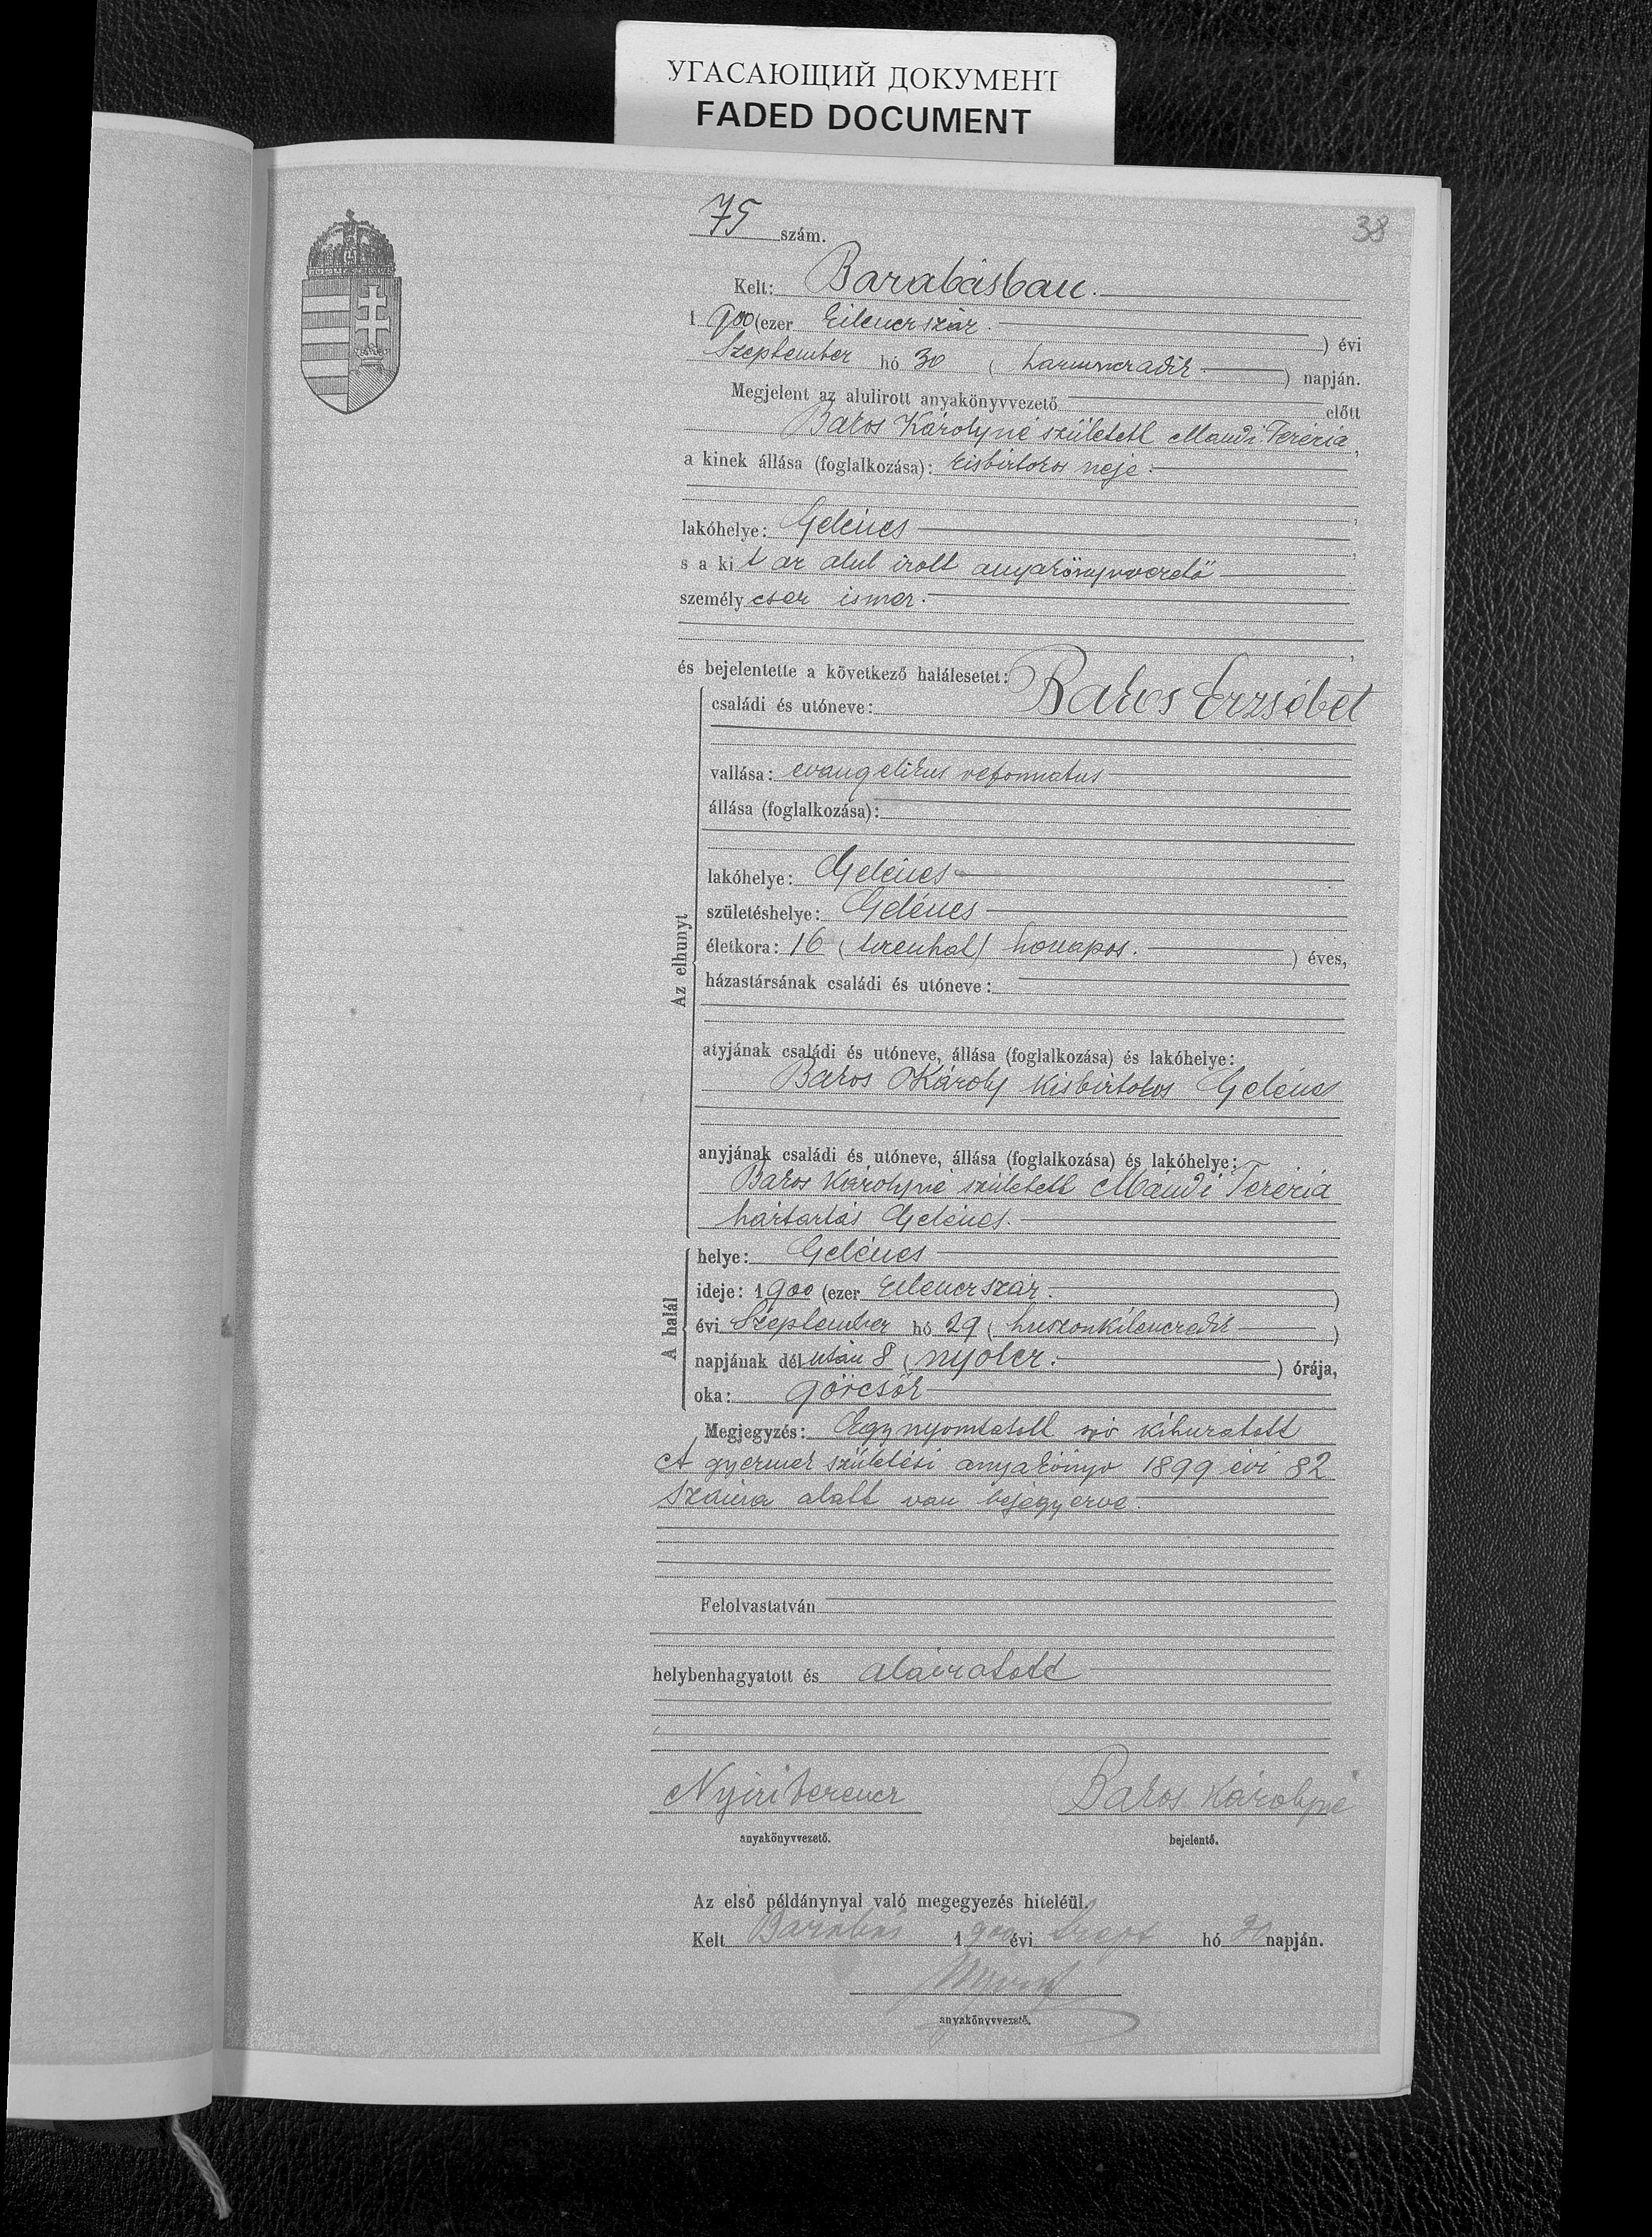 УГАСАЮЩИЙ ДОКУМЕНТ
FADED DOCUMENT
38
75 szám.
Kelt: Barabásban.
1900 (ezer kilenczszáz ) évi
Szeptember hó 30 ( harminczadik ) napján.
Megjelent az alulirott anyakönyvvezető előtt
Bakos Károlyné született Mandi Terézia,
a kinek állása (foglalkozása): kisbirtokos neje
lakóhelye: Gelénes
s a kit az alul irott anyakönyvvezető
személyesen ismer.
és bejelentette a következő halálesetet:
családi és utóneve: Bakos Erzsébet
vallása: evangelikus reformatus
állása (foglalkozása):
Az elhunyt
lakóhelye: Gelénes
születéshelye: Gelénes
életkora: 16 (tizenhat) honapos. ) éves,
házastársának családi és utóneve:
atyjának családi és utóneve, állása (foglalkozása) és lakóhelye:
Bakos Károly kisbirtokos Gelénes
anyjának családi és utóneve, állása (foglalkozása) és lakóhelye:
Bakos Károlyné született Mándi Terézia
háztartás Gelénes.
A halál
helye: Gelénes
ideje: 1900 (ezer kilenczszáz. )
évi Szeptember hó 29 ( huszonkilenczedik )
napjának délután 8 ( nyolcz. ) órája,
oka: görcsök
Megjegyzés: Egy nyomtatott szó kihuzatott
A gyermek születési anyakönyv 1899 évi 82
száma alatt van bejegyezve.
Felolvastatván
helybenhagyatott és aláiratott
Nyiri Ferencz Bakos Károlyné
anyakönyvvezető. bejelentő.
Az első példánynyal való megegyezés hiteléül.
Kelt Barabás 1900 évi Szept hó 30 napján.
anyakönyvvezető.